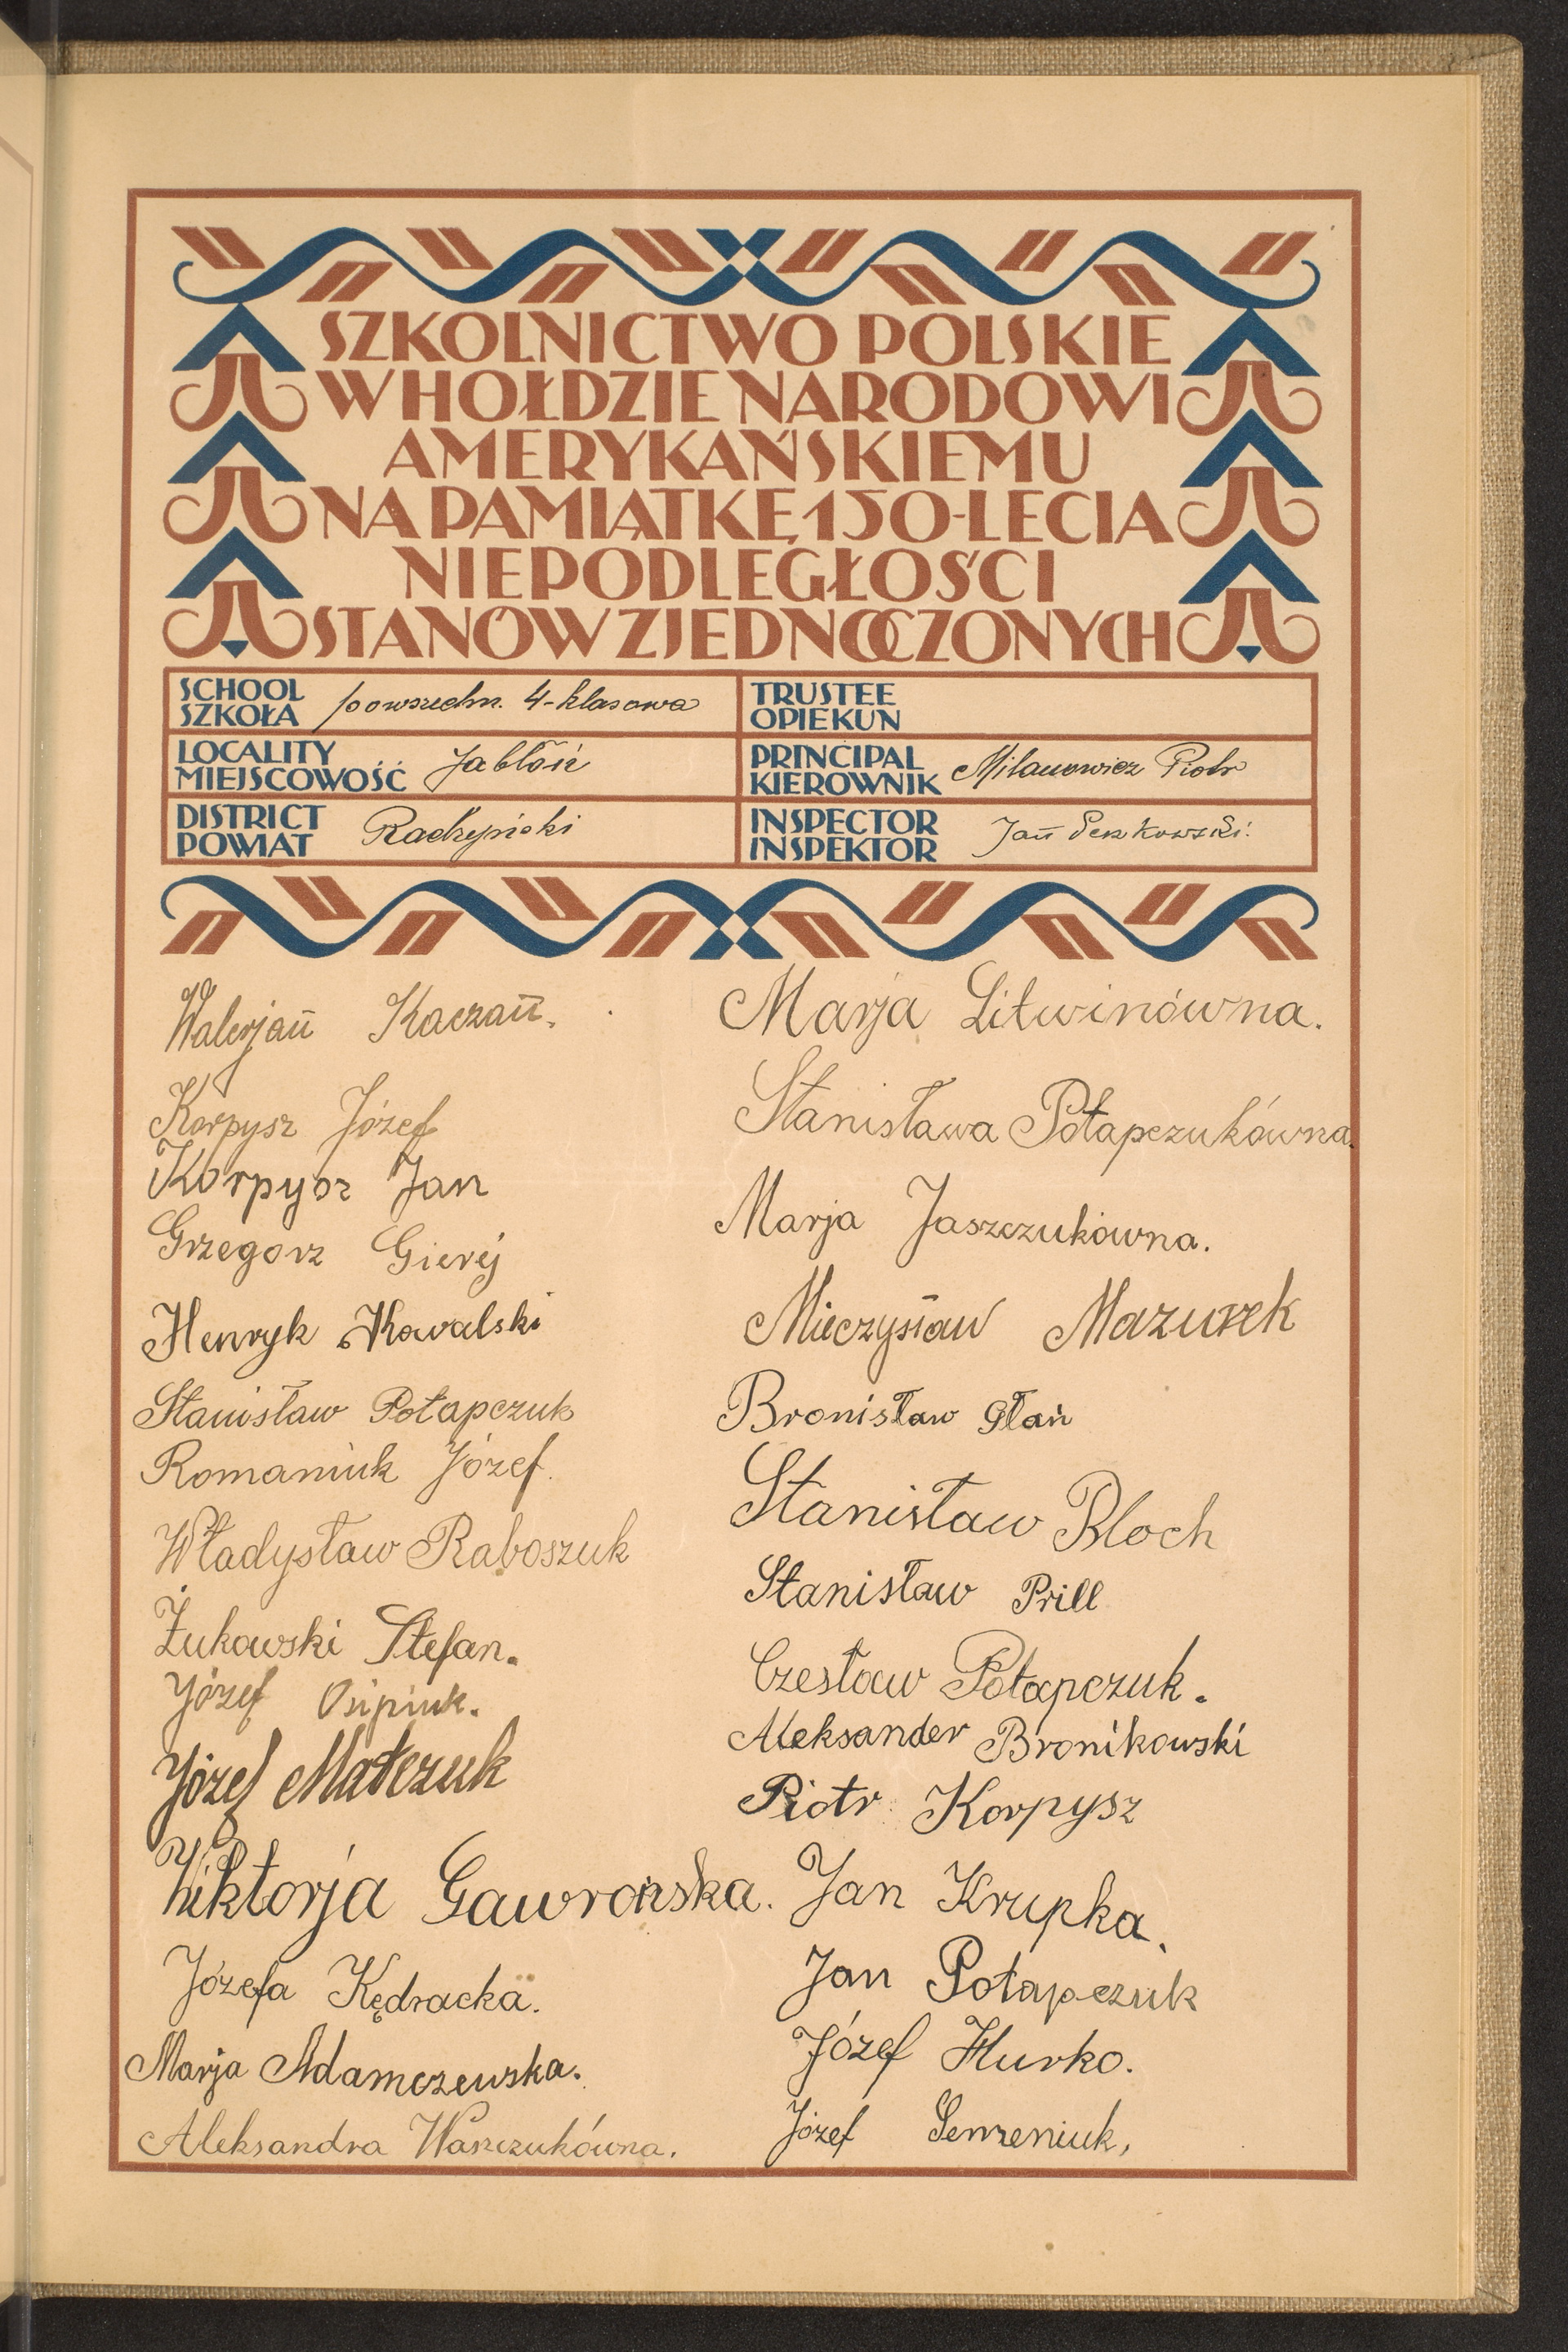 SZKOLNICTWO POLSKIE
W HOŁDZIE NARODOWI
AMERYKAŃSKIEMU
NA PAMIĄTKĘ 150-LECIA
NIEPODLEGŁOŚCI
STANÓW ZJEDNOCZONYCH
SCHOOL
SZKOŁA powszechn. 4-klasowa
TRUSTEE
OPIEKUN
LOCALITY
MIEJSCOWOŚĆ Jabłoń
PRINCIPAL
KIEROWNIK Milanowicz Piotr
DISTRICT
POWIAT Radzyński
INSPECTOR
INSPEKTOR Jan
Walerjan Kaczan.
Korpysz Józef
Korpysz Jan
Grzegorz Gierej
Henryk Kowalski
Stanisław Potapczuk
Romaniuk Józef.
Władysław Raboszuk
Żukowski Stefan.
Józef Osipiuk.
Józef Matczuk
Wiktorja Gawrońska.
Józefa Kędracka.
Marja Adamczewska.
Aleksandra Waszczukówna.
Marja Litwinówna.
Stanisława Potapczukówna.
Marja Jaszczukówna.
Mieczysław Mazurek
Bronisław Głań
Stanisław Bloch
Stanisław Prill
Czesław Potapczuk.
Aleksander Bronikowski
Piotr Korpysz
Jan Krupka.
Jan Potapczuk
Józef Hurko.
Józef Semeniuk,